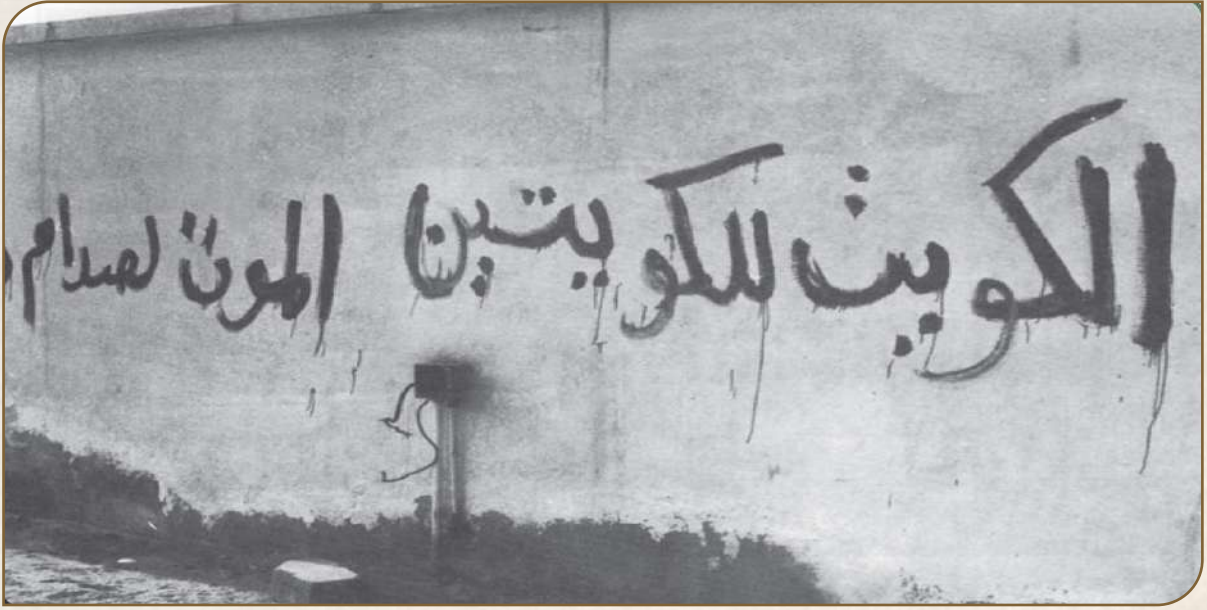 الكويت للكويتين الموت لصدام